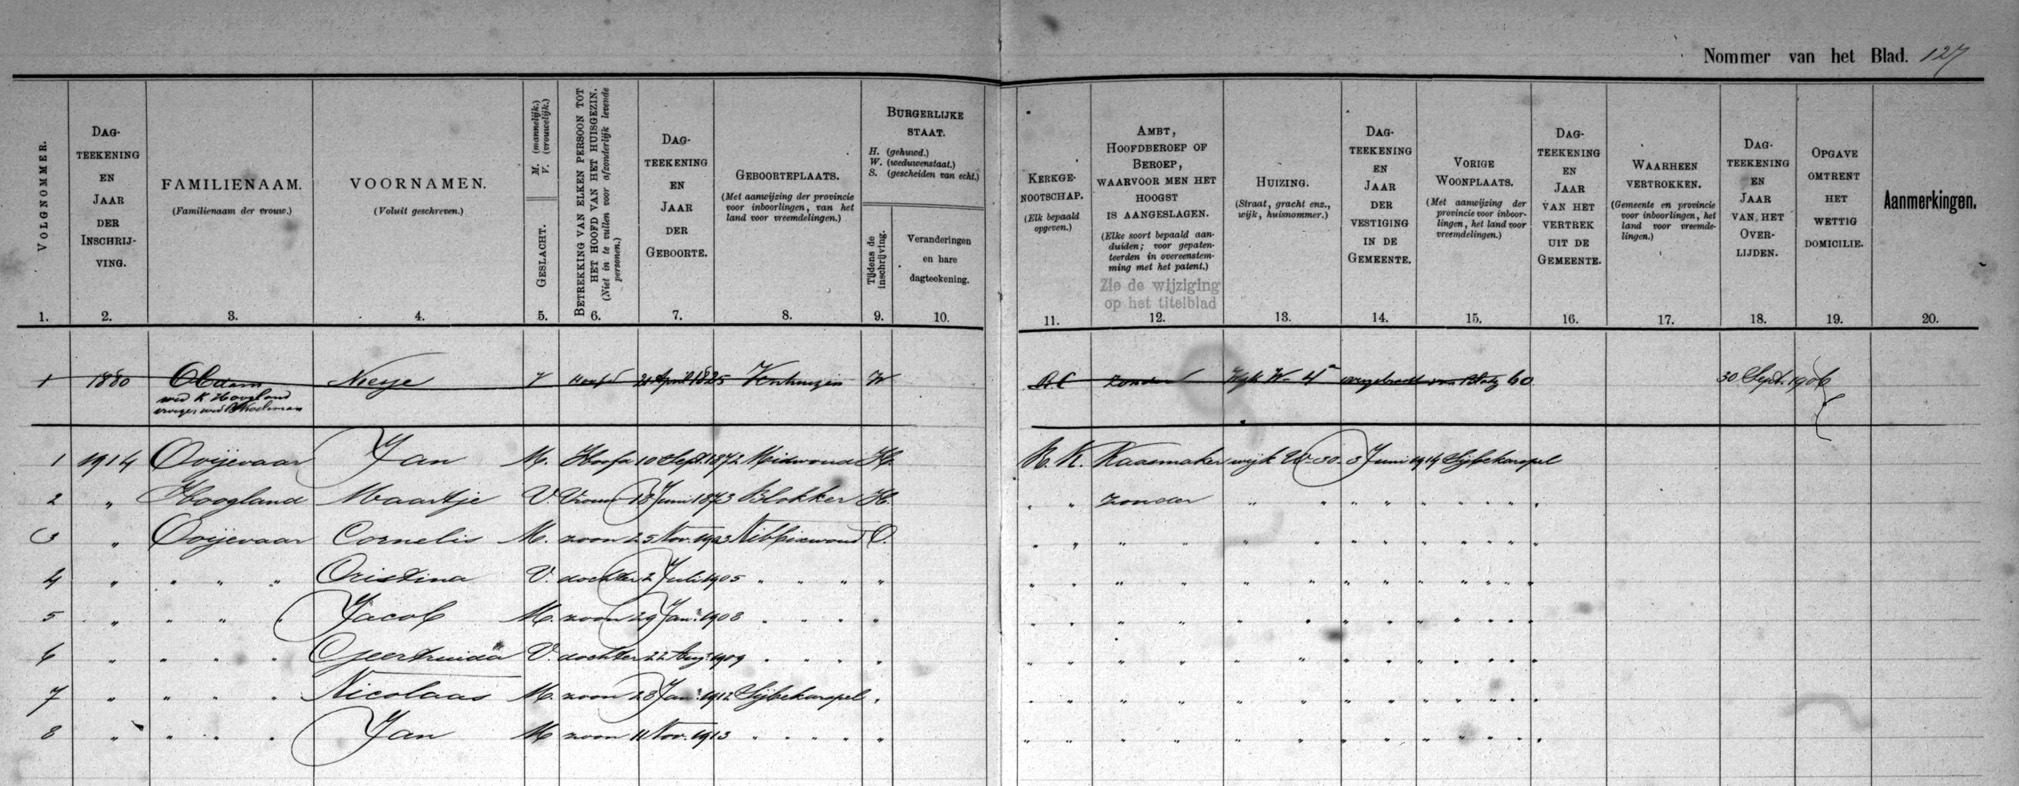 Nommer van het Blad. 127
VOLGNOMMER.
1.
DAG-
TEEKENING
EN
JAAR
DER
INSCHRIJ-
VING.
2.
FAMILIENAAM.
(Familienaam der vrouw.)
3.
VOORNAMEN.
(Voluit geschreven.)
4.
M. (mannelijk.)
V. (vrouwelijk.)
GESLACHT.
5.
BETREKKING VAN ELKEN PERSOON TOT
HET HOOFD VAN HET HUISGEZIN.
(Niet in te vullen voor afzonderlijk levende
personen.)
6.
DAG-
TEEKENING
EN
JAAR
DER
GEBOORTE.
7.
GEBOORTEPLAATS.
(Met aanwijzing der provincie
voor inboorlingen, van het
land voor vreemdelingen.)
8.
BURGERLIJKE
STAAT.
H. (gehuwd.)
W. (weduwenstaat.)
S. (gescheiden van echt.)
Tijdens de
inschrijving.
9.
Veranderingen
en hare
dagteekening.
10.
KERKGE-
NOOTSCHAP.
(Elk bepaald
opgeven.)
11.
AMBT,
HOOFDBEROEP OF
BEROEP,
WAARVOOR MEN HET
HOOGST
IS AANGESLAGEN.
(Elke soort bepaald aan-
duiden; voor gepaten-
teerden in overeenstem-
ming met het patent.)
Zie de wijziging
op het titelblad
12.
HUIZING.
(Straat, gracht enz.,
wijk, huisnommer.)
13.
DAG-
TEEKENING
EN
JAAR
DER
VESTIGING
IN DE
GEMEENTE.
14.
VORIGE
WOONPLAATS.
(Met aanwijzing der
provincie voor inboor-
lingen, het land voor
vreemdelingen.)
15.
DAG-
TEEKENING
EN
JAAR
VAN HET
VERTREK
UIT DE
GEMEENTE.
16.
WAARHEEN
VERTROKKEN.
(Gemeente en provincie
voor inboorlingen, het
land voor vreemde-
lingen.)
17.
DAG-
TEEKENING
EN
JAAR
VAN HET
OVER-
LIJDEN.
18.
OPGAVE
OMTRENT
HET
WETTIG
DOMICILIE.
19.
Aanmerkingen.
20.
1 1880 Obdam Niesje V Hoofd 21 April 1825 Venhuizen W RC zonder Wijk W 4 overgeboekt van Bladz 60 30 Sept. 1906
wed K Hoogland
vroeger wed
1 1914 Ooijevaar Jan M. Hoofd 10 Sept. 1872 Midwoud H. R. K. Kaasmaker wijk W 30 3 Juni 1914 Sijbekarspel
2 " Hoogland Maartje V. Vrouw 13 Juni 1873 Blokker H. " " zonder " " " " " " "
3 " Ooijevaar Cornelis M. zoon 25 Nov. 1903 Nibbixwoud O. " " " " " " " " " " "
4 " " " " Cristina V. dochter 2 Juli 1905 " " " " " " " " " " " " " " "
5 " " " " Jacob M. zoon 29 Jan. 1908 " " " " " " " " " " " " " " "
6 " " " " Geertruida V. dochter 22 Aug. 1909 " " " " " " " " " " " " " " "
7 " " " " Nicolaas M. zoon 28 Jan. 1912 Sijbekarspel " " " " " " " " " " " "
8 " " " " Jan M zoon 11 Nov. 1913 " " " " " " " " " " " " " " "